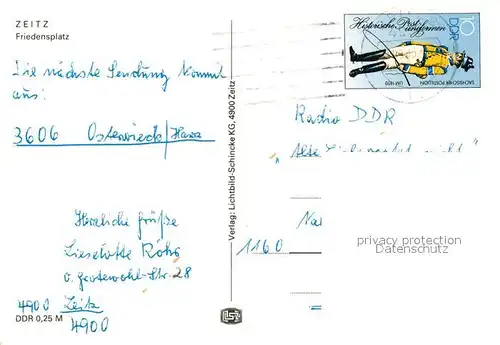 ZEITZ
Friedensplatz
Die nächste Sendung kommt
aus:
3606 Osterwieck/Harz
Herzliche Grüße
Lieselotte Röhr
o. Grotewohl-Str. 28
4900 Zeitz
4900
DDR 0,25 M
Verlag: Lichtbild-Schincke KG, 4900 Zeitz
Historische Postuniformen
DDR
10
SÄCHSISCHER POSTILLION
UM 1850
Radio DDR
"Alte nicht"
Na
1160
privacy protection
Datenschutz